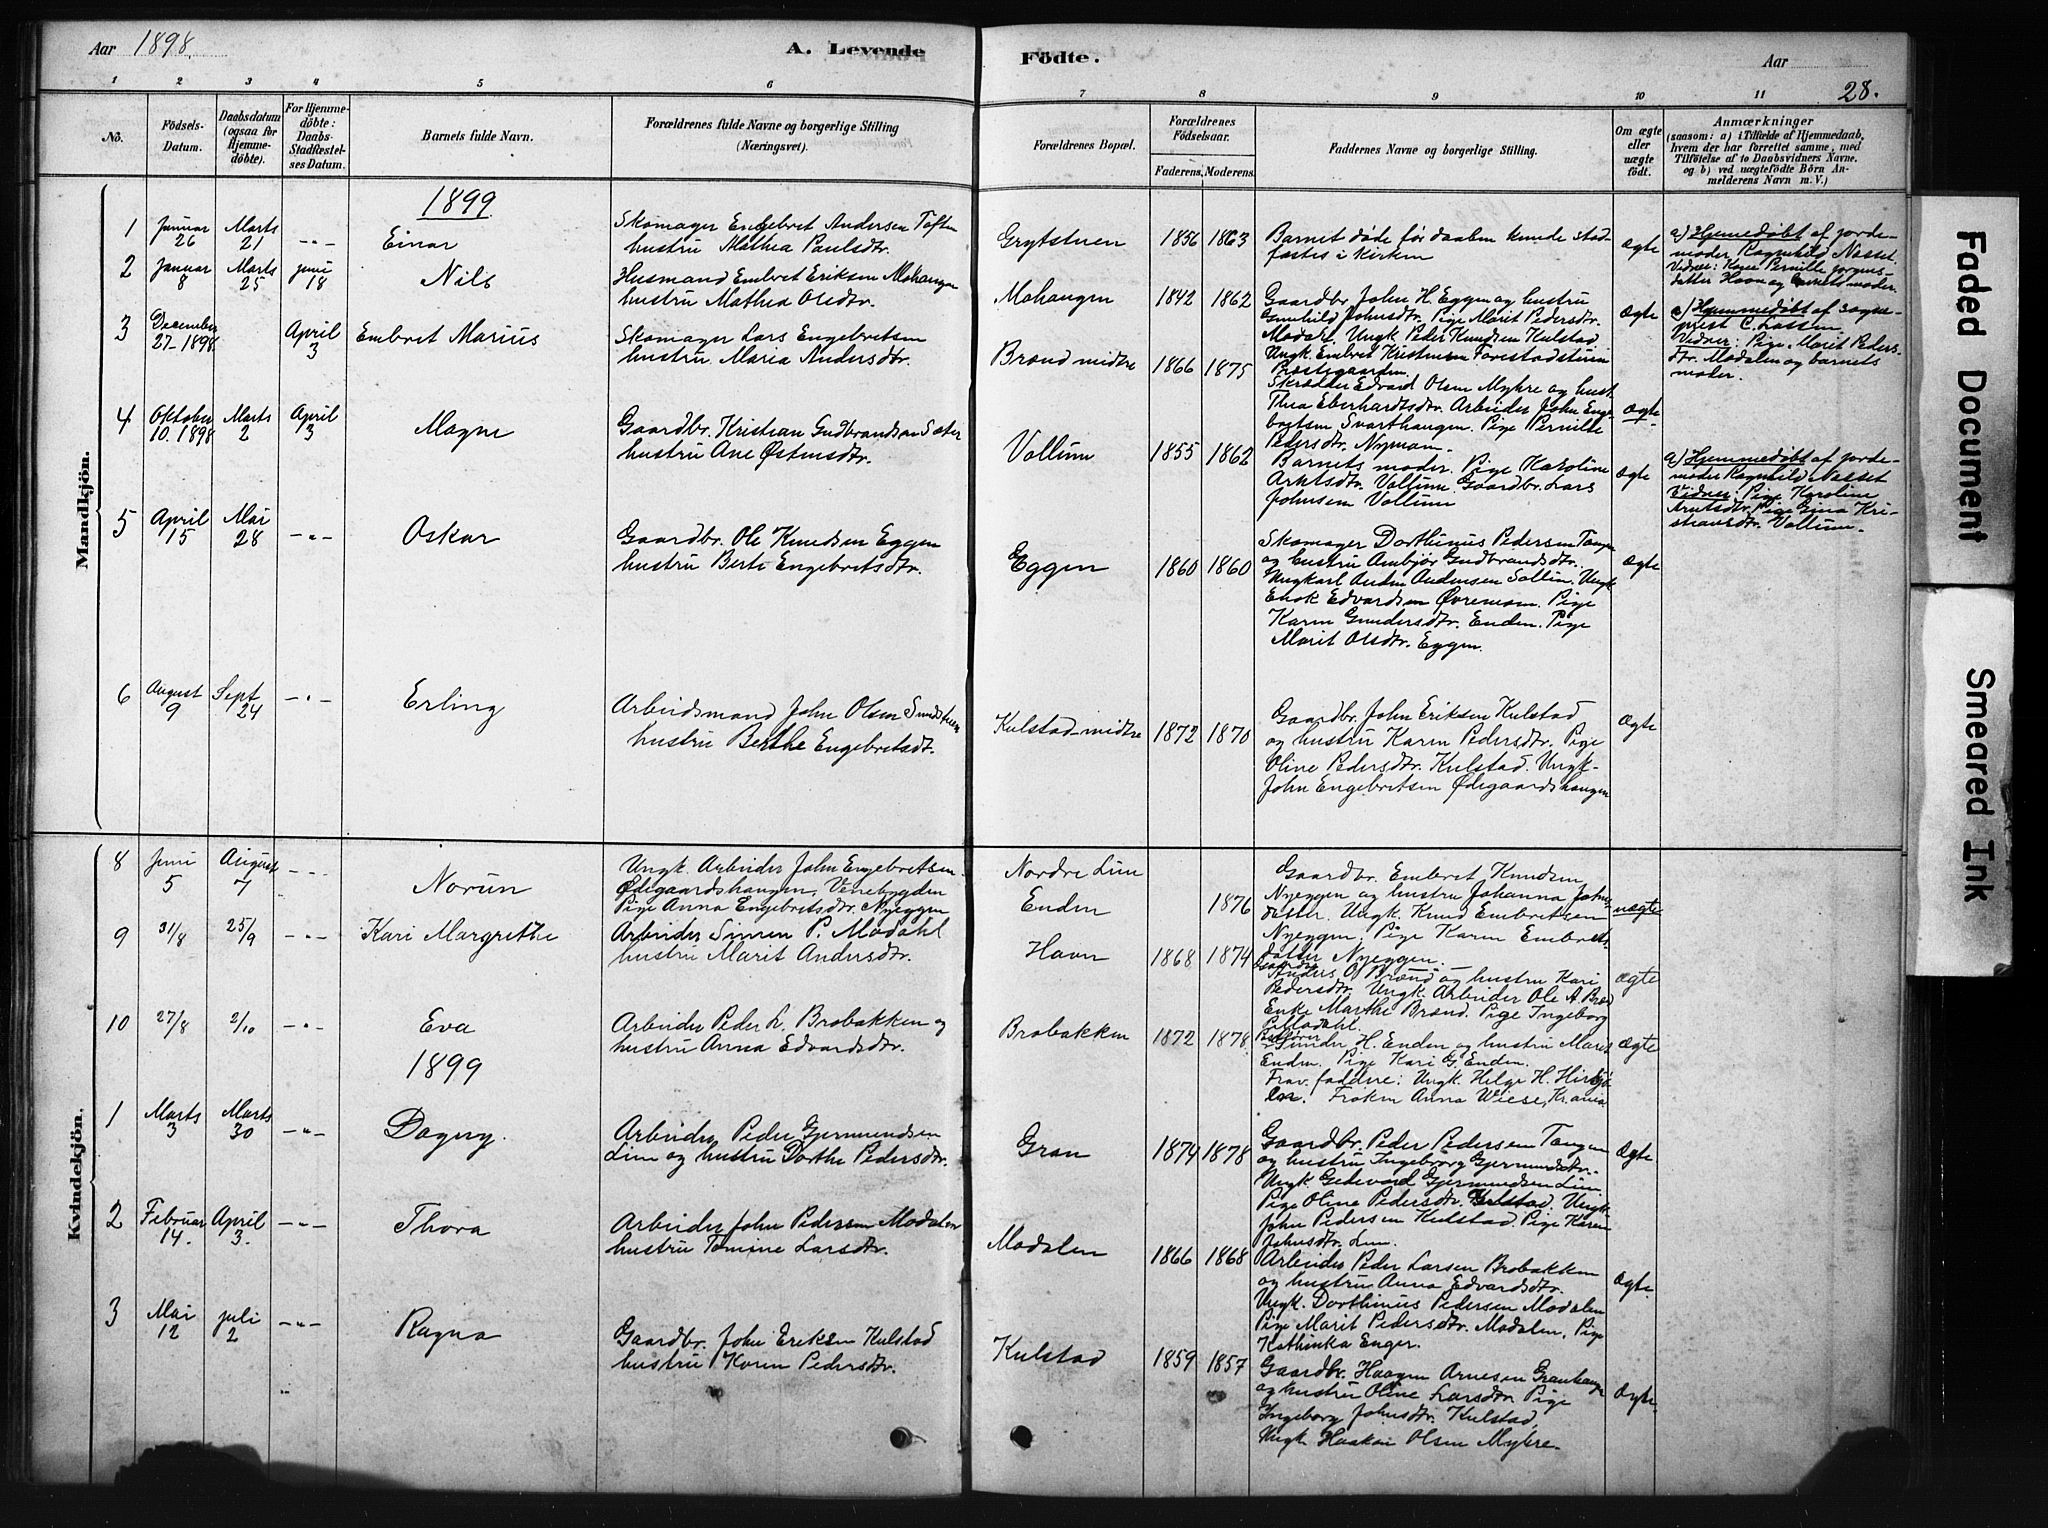 Aar 1898.
A. Levende
Födte.
Aar
28.
1 2 3 4 5 6 7 8 9 10 11
No.
Födsels-Datum.
Daabsdatum (ogsaa for Hjemme-döbte).
For Hjemme-döbte: Daabs-Stadfæstel-ses Datum.
Barnets fulde Navn.
Forældrenes fulde Navne og borgerlige Stilling (Næringsvei).
Forældrenes Bopæl.
Forældrenes Födselsaar.
Faderens. Moderens.
Faddernes Navne og borgerlige Stilling.
Om ægte eller uægte födt.
Anmærkninger
(saasom: a) i Tilfælde af Hjemmedaab,
hvem der har forrettet samme, med
Tilföielse af to Daabsvidners Navne.
og b) ved uægtefödte Börn An-
melderens Navn m. V.)
Mandkjön.
1899
1 Januar 26 Marts 21 -"- Einar
Skomager Engebret Andersen Toften
hustru Mathea Paulsdtr.
Grytstuen 1856 1863
Barnet døde før daaben kunde stad-
fæstes i kirken
Ægte
a) Hjemmedøbt af jorde-
moder Ragnhild Nasset
Vidner: Kone Pernille Jørgens-
datter Havn og barnets moder.
2 Januar 8 Marts 25 Juni 18 Nils
Husmand Embret Eriksen Mohangen
hustru Mathea Olsdtr.
Mohangen 1842 1862
Gaardbr. John H. Eggen og hustru
Gunhild Johnsdtr. Pige Marit Pedersdtr.
Modal. Ungk. Peder Knudsen Kulstad
Ungk. Embret Kristensen
Præstegaarden.
Ægte
a) Hjemmedøbt af sogne-
prest C. Lassen
Vidner: Pige Marit Peders-
dtr. Modalen og barnets
moder.
3 December 27-1898 April 3 Embret Marius
Skomager Lars Engebretsen
hustru Maria Andersdtr.
Brænd midtre 1866 1875
Skrædder Edvard Olsen Myhre og hust.
Thea Eberhardtsdtr. Arbeider John Enge-
bretsen Svarthaugen. Pige Pernille
Pedersdtr. Nymoen.
Ægte.
4 Oktober 10. 1898 Marts 2 April 3 Magne
Gaardbr. Kristian Gudbrandsen Sæter
hustru Ane Østensdtr.
Vollum 1855 1862
Barnets moder. Pige Karoline
Arntsdtr. Vollum. Gaardbr. Lars
Johnsen Vollum
Ægte
a) Hjemmedøbt af jorde-
moder Ragnhild Nasset
Vidner: Pige Karoline
Arntsdtr. Pige Gina Kri-
stiansdtr. Vollum.
5 April 15 Mai 28 -"- Oskar
Gaardbr. Ole Knudsen Eggen
hustru Berte Engebretsdtr.
Eggen 1860 1860
Skomager Dorthinus Pedersen Tangen
og hustru Ambjør Gudbrandsdtr.
Ungkarl Anders Andersen Sollien. Ungk
Enok Edvardsen Øvremoen. Pige
Karen Gundersdtr. Enden. Pige
Marit Olsdtr. Eggen.
Ægte
6 August 9 Sept 24 -"- Erling
Arbeidsmand John Olsen Sundstuen
hustru Berthe Engebretsdt.
Kulstad midtre 1872 1870
Gaardbr. John Eriksen Kulstad
og hustru Karen Pedersdtr. Pige
Oline Pedersdtr. Kulstad. Ungk.
John Engebretsen Ødegaardshaugen
Ægte
Kvindekjön.
8 Juni 5 August 7 -"- Norun
Ungk. Arbeider John Engebretsen
Ødegaardshaugen, Venebygden
Pige Anna Engebretsdtr. Nyeggen
Nordre Lien
Enden 1876
Gaardbr. Embret Knudsen
Nyeggen og hustru Johanna Johns-
datter. Ungk. Knud Embretsen
Nyeggen, Pige Karen Embrets
datter Nyeggen.
uægte
9 31/8 25/9 -"- Kari Margrethe
Arbeider Simen P. Modahl
hustru Marit Andersdtr.
Havn 1868 1874
Gaardbr. Anders O. Brænd og hustru Kari
Pedersdtr. Ungk. Arbeider Ole A. Bræn
Enke Marthe Brænd. Pige Ingeborg
P. Modahl.
Ægte
10 27/8 2/10 -"- Eva
Arbeider Peder L. Brobakken og
hustru Anna Edvardsdtr.
Brobakken 1872 1878
Gunder H. Enden og hustru Marit
Enden. Pige Kari G. Enden.
Frav. faddere: Ungk. Helge H. Hirkjø-
len. Frøken Anna Wiese, Kr.ania
Ægte
1899
1 Marts 3 Marts 30 -"- Dagny.
Arbeider Peder Gjermundsen
Lien og hustru Dorthe Pedersdtr.
Gran 1874 1878
Gaardbr. Peder Pedersen Tangen
og hustru Ingeborg Gjermundsdtr.
Ungk. Gedevard Gjermundsen Lien
Pige Oline Pedersdtr. Kulstad. Ungk.
John Pedersen Kulstad. Pige Karen
Johnsdtr. Lien.
Ægte
2 Februar 14. April 3. -"- Thora
Arbeider John Pedersen Modalen
hustru Tomine Larsdtr.
Modalen 1866 1868
Arbeider Peder Larsen Brobakken
og hustru Anna Edvardsdtr.
Ungk. Dorthinus Pedersen Modalen
Pige Marit Pedersdtr. Modalen. Pige
Kathinka Enger.
Ægte.
3 Mai 12 Juli 2 -"- Ragna
Gaardbr. John Eriksen Kulstad
hustru Karen Pedersdtr.
Kulstad 1859 1857
Gaardbr. Haagen Arnesen Granhaug
og hustru Oline Larsdtr. Pige
Ingeborg Johnsdtr. Kulstad.
Ungk. Haakon Olsen Myhre.
Ægte.
Faded Document
Smeared Ink